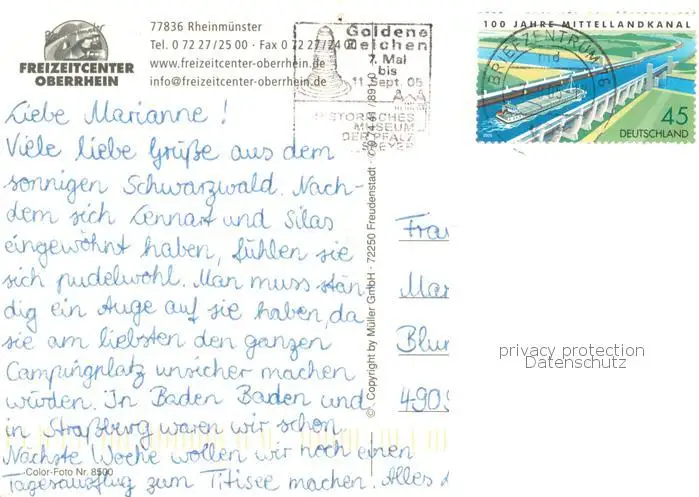 FREIZEITCENTER
OBERRHEIN
77836 Rheinmünster
Tel. 0 72 27/25 00 · Fax 0 72 27/24 00
www.freizeitcenter-oberrhein.de
info@freizeitcenter-oberrhein.de
Goldene
Zeichen
7. Mai
bis
11. Sept. 05
HISTORISCHES
MUSEUM
DER PFALZ
SPEYER
BRIEFZENTRUM
100 JAHRE MITTELLANDKANAL
45
DEUTSCHLAND
Liebe Marianne!
Viele liebe Grüße aus dem
sonnigen Schwarzwald. Nach-
dem sich Lennart und Silas
eingewöhnt haben, fühlen sie
sich pudelwohl. Man muss stän
dig ein Auge auf sie haben, da
sie am liebsten den ganzen
Campingplatz unsicher machen
würden. In Baden Baden und
in Straßburg waren wir schon.
Nächste Woche wollen wir noch einen
Tagesausflug zum Titisee machen. Alles
Color-Foto Nr. 8500
© Copyright by Müller GmbH · 72250 Freudenstadt
Frau
Mar
Blum
4909
privacy protection
Datenschutz